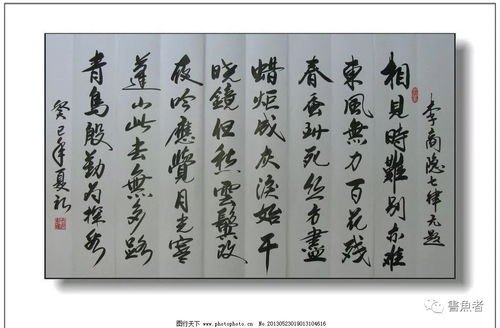 李商隐七律无题
相見時難别亦難
東風無力百花殘
春蚕到死丝方盡
蜡炬成灰淚始干
晓鏡但愁雲鬓改
夜吟應覺月光寒
蓬山此去無多路
青鳥殷勤为探看
癸巳年夏
書魚者
图行天下 www.photophoto.cn No.20130523019013104616